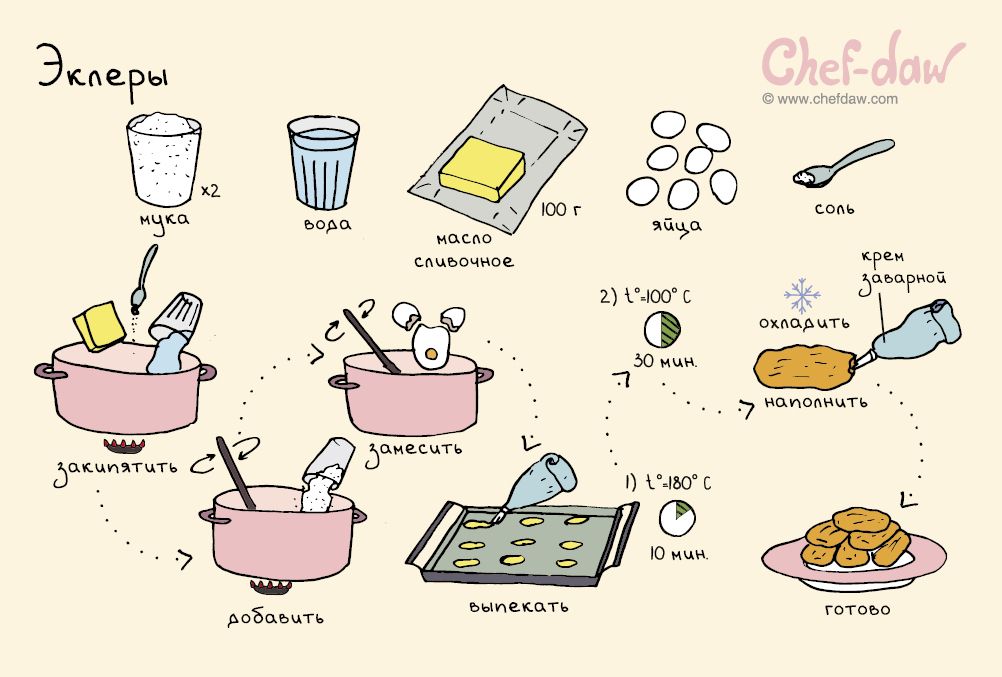 Эклеры
Chef-daw
© www.chefdaw.com
x2
мука
вода
100 г
масло
сливочное
яйца
соль
закипятить
добавить
замесить
выпекать
1) t°=180° C
10 мин.
2) t°=100° C
30 мин.
охладить
крем
заварной
наполнить
готово